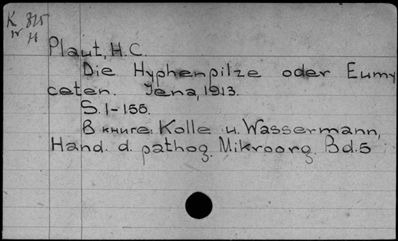 K 825
Plaut, H.C.
Die Hyphenpilze oder Eumy
ceten. Jena, 1913.
S. 1-155.
В книге: Kolle u. Wassermann,
Hand. d. pathog. Mikroorg. Bd. 5